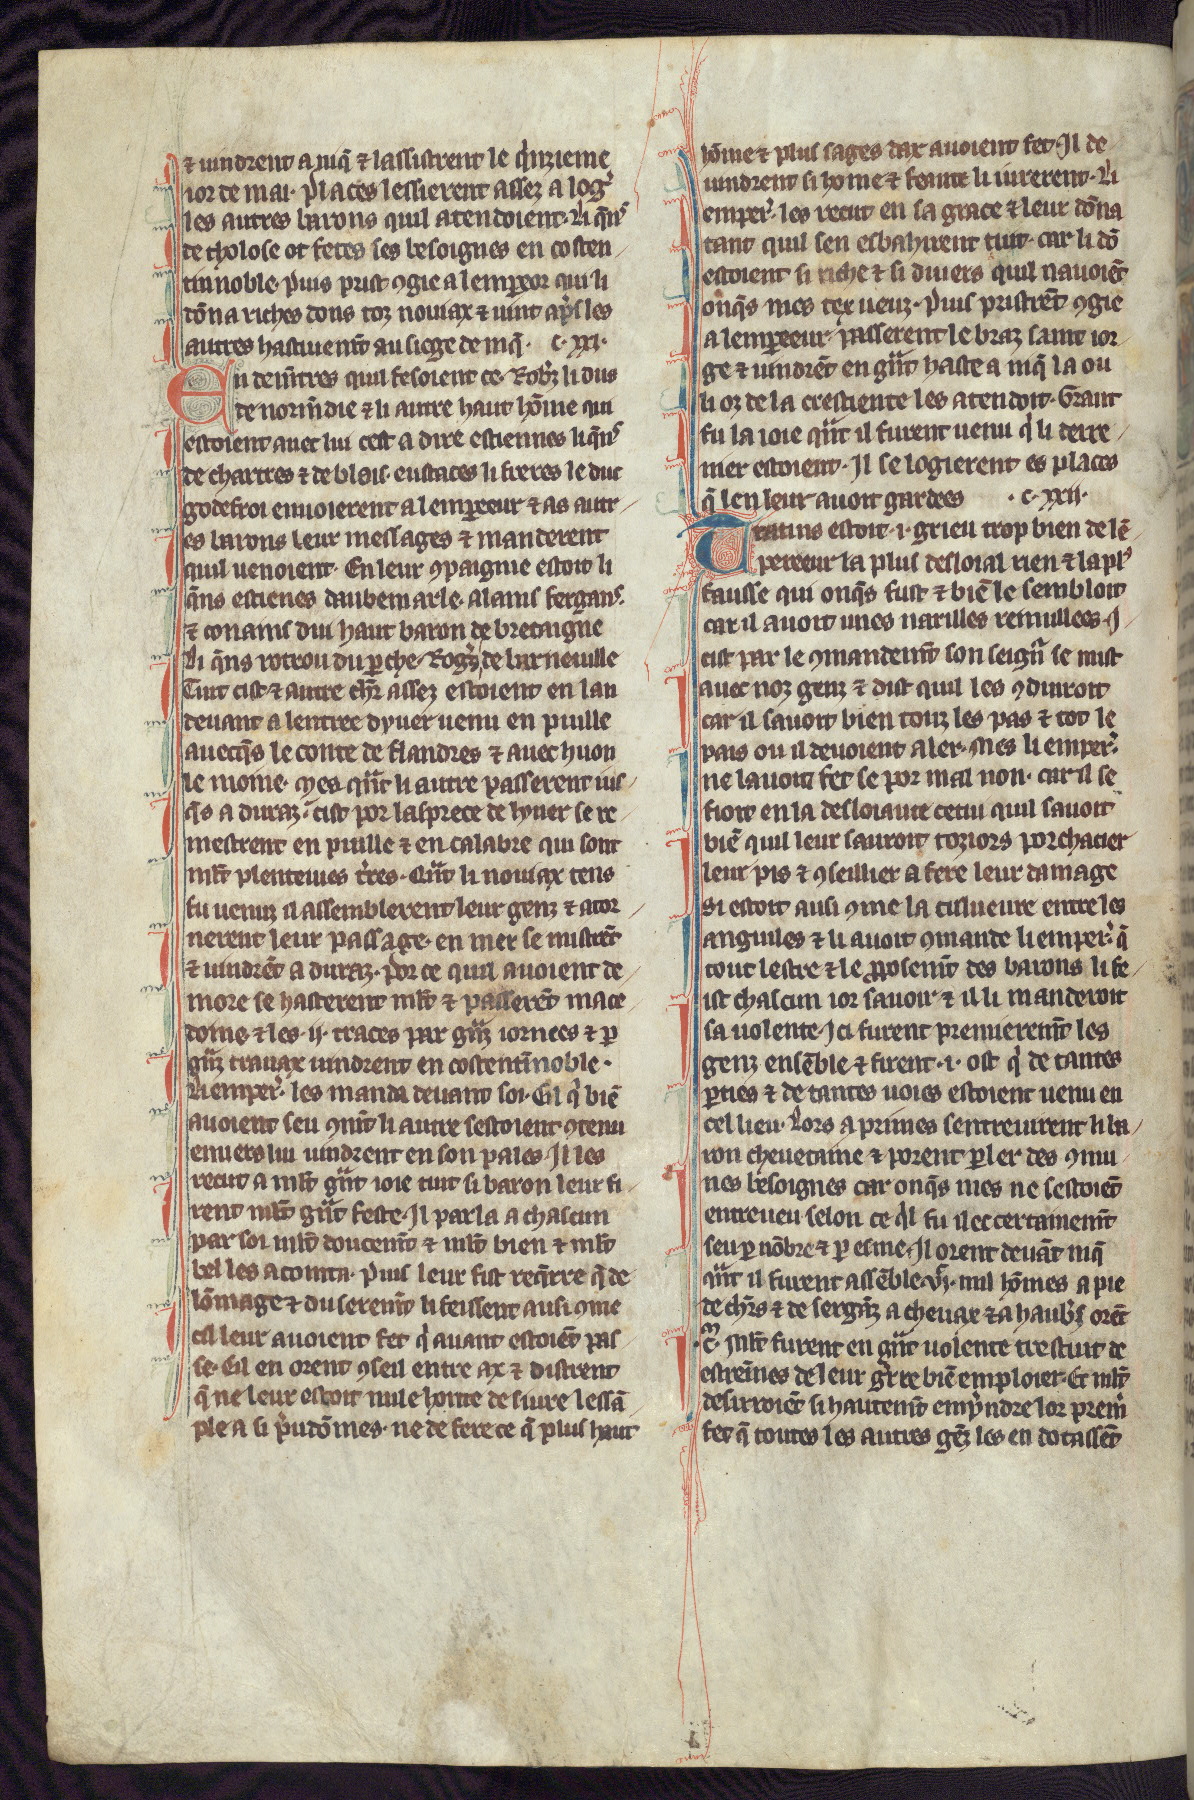 ⁊ vindrent a niq̃ ⁊ lassistrent le q̃nzieme
ior de mai. places lessierent assez a log̃
les autres barons quil atendoient. Li q̃ns
de tholose ot fetes ses besoignes en costen
tinnoble. Puis prist ꝯgie a lempeor qui li
dõna riches dons toz noviax ⁊ vint ap̃s les
autres hastivem̃t au siege de niq̃. c. xxi.
En dem̃tres quil fesoient ce. Rob̃z li dus
de norm̃die ⁊ li autre haut hõme qui
estoient avec lui cest a dire estiennes li q̃ns
de chartres ⁊ de blois. eustaces li freres le duc
godefroi envoierent a lempereur ⁊ as autr
es barons leur messages ⁊ manderent
quil venoient. En leur ꝯpaignie estoit li
q̃ns estienes daubemarle. alains fergans.
⁊ conanis dui haut baron de bretaigne
Li q̃ns rotrou du perche. Rog̃s de barneville
Tuit cist ⁊ autre ch̃rs assez estoient en lan
devant a lentree dyver venu en puille
avecq̃s le conte de flandres ⁊ avec huon
le mome. Mes q̃nt li autre passerent ius
q̃s a duraz. cist por lasprece de lyver se re
mestrent en puille ⁊ en calabre qui sont
ml̃t plentives t̃res. Q̃nt li noviax tens
fu venuz il assemblerent leur genz ⁊ ator
nerent leur passage. en mer se mistrẽt
⁊ vindrẽt a duraz. por ce quil avoient de
more se hasterent ml̃t ⁊ passerẽt mace
doine ⁊ les .ii. traces par g̃nz iornees ⁊ p
g̃nz travax vindrent en costentĩnoble.
Li emper̃. les manda devant soi. Cil q̃ biẽ
avoient seu ꝯm̃t li autre sestoient ꝯtenu
envers lui vindrent en son pales. Il les
recut a ml̃t g̃nt ioie tuit si baron leur fi
rent ml̃t g̃nt feste. Il parla a chascun
par soi ml̃t doucem̃t ⁊ ml̃t bien ⁊ ml̃t
bel les acointa. Puis leur fist req̃rre q̃ de
lõmage ⁊ du serem̃t li feissent ausi ꝯme
cil leur avoient fet q̃ avant estoiẽt pas
se. Cil en orent ꝯseil entre ax ⁊ distrent
q̃ ne leur estoit nule honte de sivre lessã
ple a si p̃udõmes. ne de fere ce q̃ plus haut
hõme ⁊ plus sages dax avoient fet. Il de
vindrent si home ⁊ feaute li iurerent. Li
emper̃. les recut en sa grace ⁊ leur dõna
tant quil sen esbahirent tuit. car li dõ
estoient si riche ⁊ si divers quil navoiẽt
onq̃s mes tex veuz. Puis pristrẽt ꝯgie
a lempereeur. passerent le braz saint ior
ge ⁊ vindrẽt en g̃nt haste a niq̃ la ou
li oz de la crestiente les atendoit. Grant
fu la ioie q̃nt il furent venu q̃ li derre
nier estoient. Il se logierent es places
q̃ len leur avoit gardees .c. xxii.
Tatins estoit .i. grieu trop bien de lẽ
pereeur la plus desloial rien ⁊ la pls
fausse qui onq̃s fust ⁊ biẽ le sembloit
car il avoit unes narilles remullees. I
cist par le ꝯmandem̃t son seign̄r se mist
avec noz genz ⁊ dist quil les ꝯduiroit
car il savoit bien touz les pas ⁊ tot le
pais ou il devoient aler. Mes li emper̃.
ne lavoit fet se por mal non. car il se
fioit en la desloiaute celui quil savoit
biẽ quil leur sauroit toziors porchacier
leur pis ⁊ ꝯseillier a fere leur damage
Si estoit ausi ꝯme la culuevre entre les
anguiles ⁊ li avoit ꝯmande li emper̃. q̃
tout lestre ⁊ le ꝓposem̃t des barons li fe
ist chascun ior savoir ⁊ il li manderoit
sa volente. Ici furent premierem̃t les
genz ensẽble ⁊ firent .i. ost q̃ de tantes
parties ⁊ de tantes voies estoient venu en
cel lieu. Lors a primes sentrevirent li ba
ron chevetaine ⁊ porent parler des ꝯmu
nes besoignes car onq̃s mes ne sestoiẽt
entreveu selon ce q̃l fu ilec certainem̃t
seu p nõbre ⁊ p esme. Il orent devãt niq̃
q̃nt il furent assẽble .vi. mil hõmes a pie
de ch̃rs ⁊ de serg̃nz a chevax ⁊ a haub̃s orẽt
.C. Ml̃t furent en g̃nt volente trestuit de
estreines de leur g̃rre biẽ emploier. Et ml̃t
desirroiẽt si hautem̃t emp̃ndre lor prem̃
fet q̃ toutes les autres gẽz les en dotassẽt